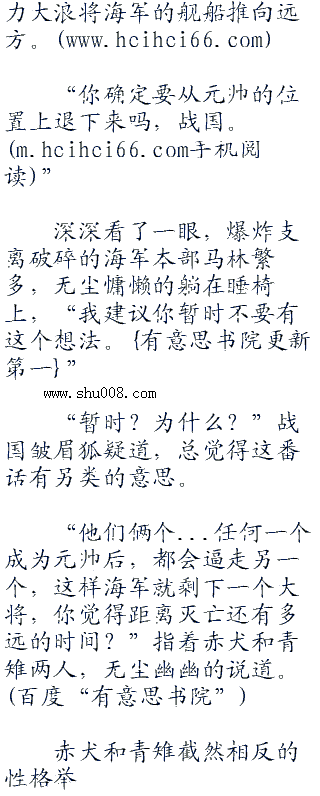 力大浪将海军的舰船推向远
方。(www.hcihci66.com)
“你确定要从元帅的位
置上退下来吗，战国。
(m.hcihci66.com手机阅
读)”
深深看了一眼，爆炸支
离破碎的海军本部马林繁
多，无尘慵懒的躺在睡椅
上，“我建议你暂时不要有
这个想法。{有意思书院更新
第一}”
www.shu008.com
“暂时？为什么？”战
国皱眉狐疑道，总觉得这番
话有另类的意思。
“他们俩个...任何一个
成为元帅后，都会逼走另一
个，这样海军就剩下一个大
将，你觉得距离灭亡还有多
远的时间？”指着赤犬和青
雉两人，无尘幽幽的说道。
(百度“有意思书院”)
赤犬和青雉截然相反的
性格举